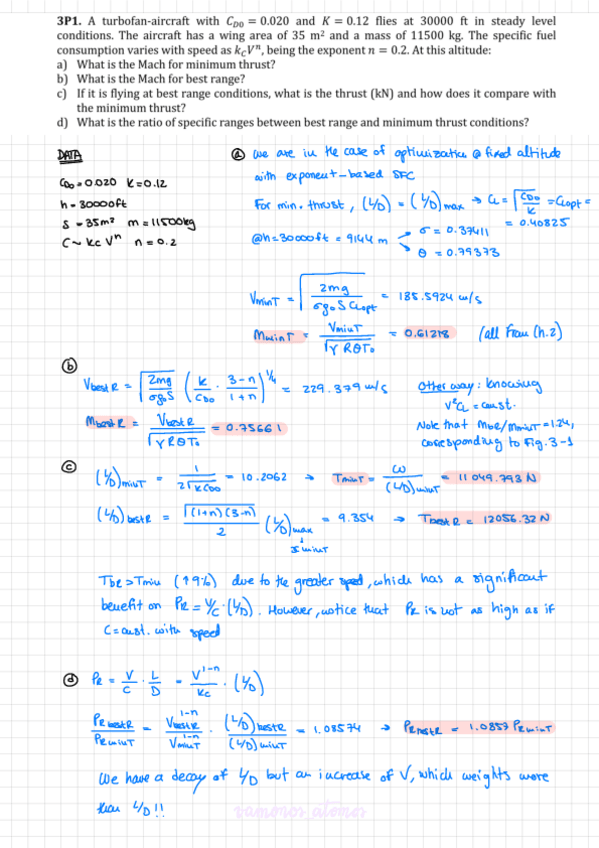 3P1. A turbofan-aircraft with C_D0 = 0.020 and K = 0.12 flies at 30000 ft in steady level
conditions. The aircraft has a wing area of 35 m² and a mass of 11500 kg. The specific fuel
consumption varies with speed as k_C V^n, being the exponent n = 0.2. At this altitude:
a) What is the Mach for minimum thrust?
b) What is the Mach for best range?
c) If it is flying at best range conditions, what is the thrust (kN) and how does it compare with
the minimum thrust?
d) What is the ratio of specific ranges between best range and minimum thrust conditions?
DATA
C_D0 = 0.020 K = 0.12
h = 30000 ft
S = 35 m² m = 11500 kg
C ~ k_C V^n n = 0.2
ⓐ We are in the case of optimization @ fixed altitude
with exponent-based SFC
For min. thrust, (L/D) = (L/D)max → C_L = √(C_D0/K) = C_Lopt =
= 0.40825
@h = 30000 ft = 9144 m → σ = 0.37411
θ = 0.79373
V_minT = √(2mg/(σρ₀S C_Lopt)) = 185.5924 m/s
M_minT = V_minT/√(γRθT₀) = 0.61218 (all from Ch.2)
ⓑ
V_bestR = √(2mg/(σρ₀S)) (K/C_D0 · (3-n)/(1+n))^1/4 = 229.379 m/s
M_bestR = V_bestR/√(γRθT₀) = 0.75661
Other way: knowing
V²C_L = const.
Note that M_BR/M_minT = 1.24,
corresponding to Fig. 3-1
ⓒ
(L/D)minT = 1/(2√(K C_D0)) = 10.2062 → T_minT = W/(L/D)minT = 11049.793 N
(L/D)bestR = √((1+n)(3-n))/2 (L/D)max = 9.354 → T_bestR = 12056.32 N
↓
= minT
T_BR > T_min (↑9%) due to the greater speed, which has a significant
benefit on P_R = V/C · (L/D). However, notice that P_R is not as high as if
C = const. with speed
ⓓ P_R = V/C · L/D = V^1-n/k_C · (L/D)
P_R bestR/P_R minT = V_bestR^1-n/V_minT^1-n · (L/D)bestR/(L/D)minT = 1.08574 → P_R bestR = 1.0857 P_R minT
We have a decay of L/D but an increase of V, which weights more
than L/D!!
vamonos_atomos